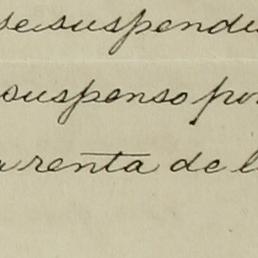 se suspendi
suspenso por
a renta de l